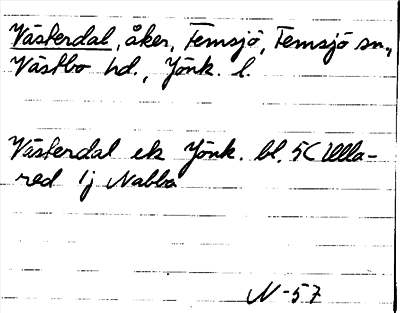 Västerdal, åker, Femsjö, Femsjö sn.,
Västbo hd., Jönk. l.
Västerdal ek Jönk. bl. 5C Ulla-
red 1j Nabba
N-57